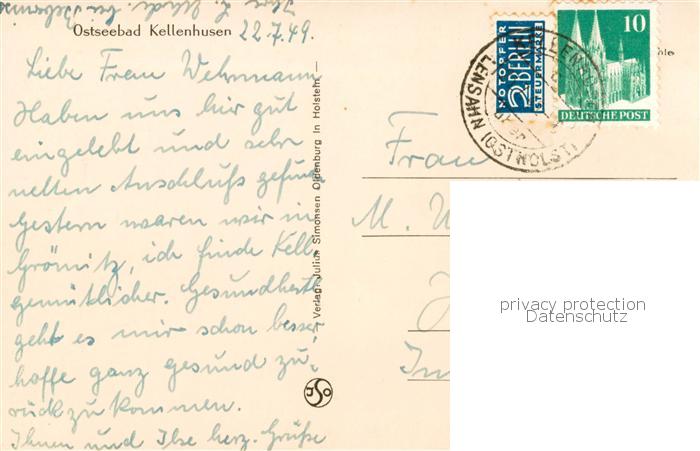 Ostseebad Kellenhusen
22.7.49.
Liebe Frau Wehrmann
Haben uns hir gut
eingelebt und sehr
netten Anschluß gefun
Gestern waren wir in
Grömitz, ich finde Kell
gemütlicher. Gesundheitl
geht es mir schon besser
hoffe ganz gesund zu
rück zu kommen.
Ihnen und Ilse herz. Grüße
Verlag: Julius Simonsen Oldenburg in Holstein
NOTOPFER
2 BERLIN
STEUERMARKE
10
DEUTSCHE POST
LENSAHN (OSTHOLST)
Frau
M. W
privacy protection
Datenschutz